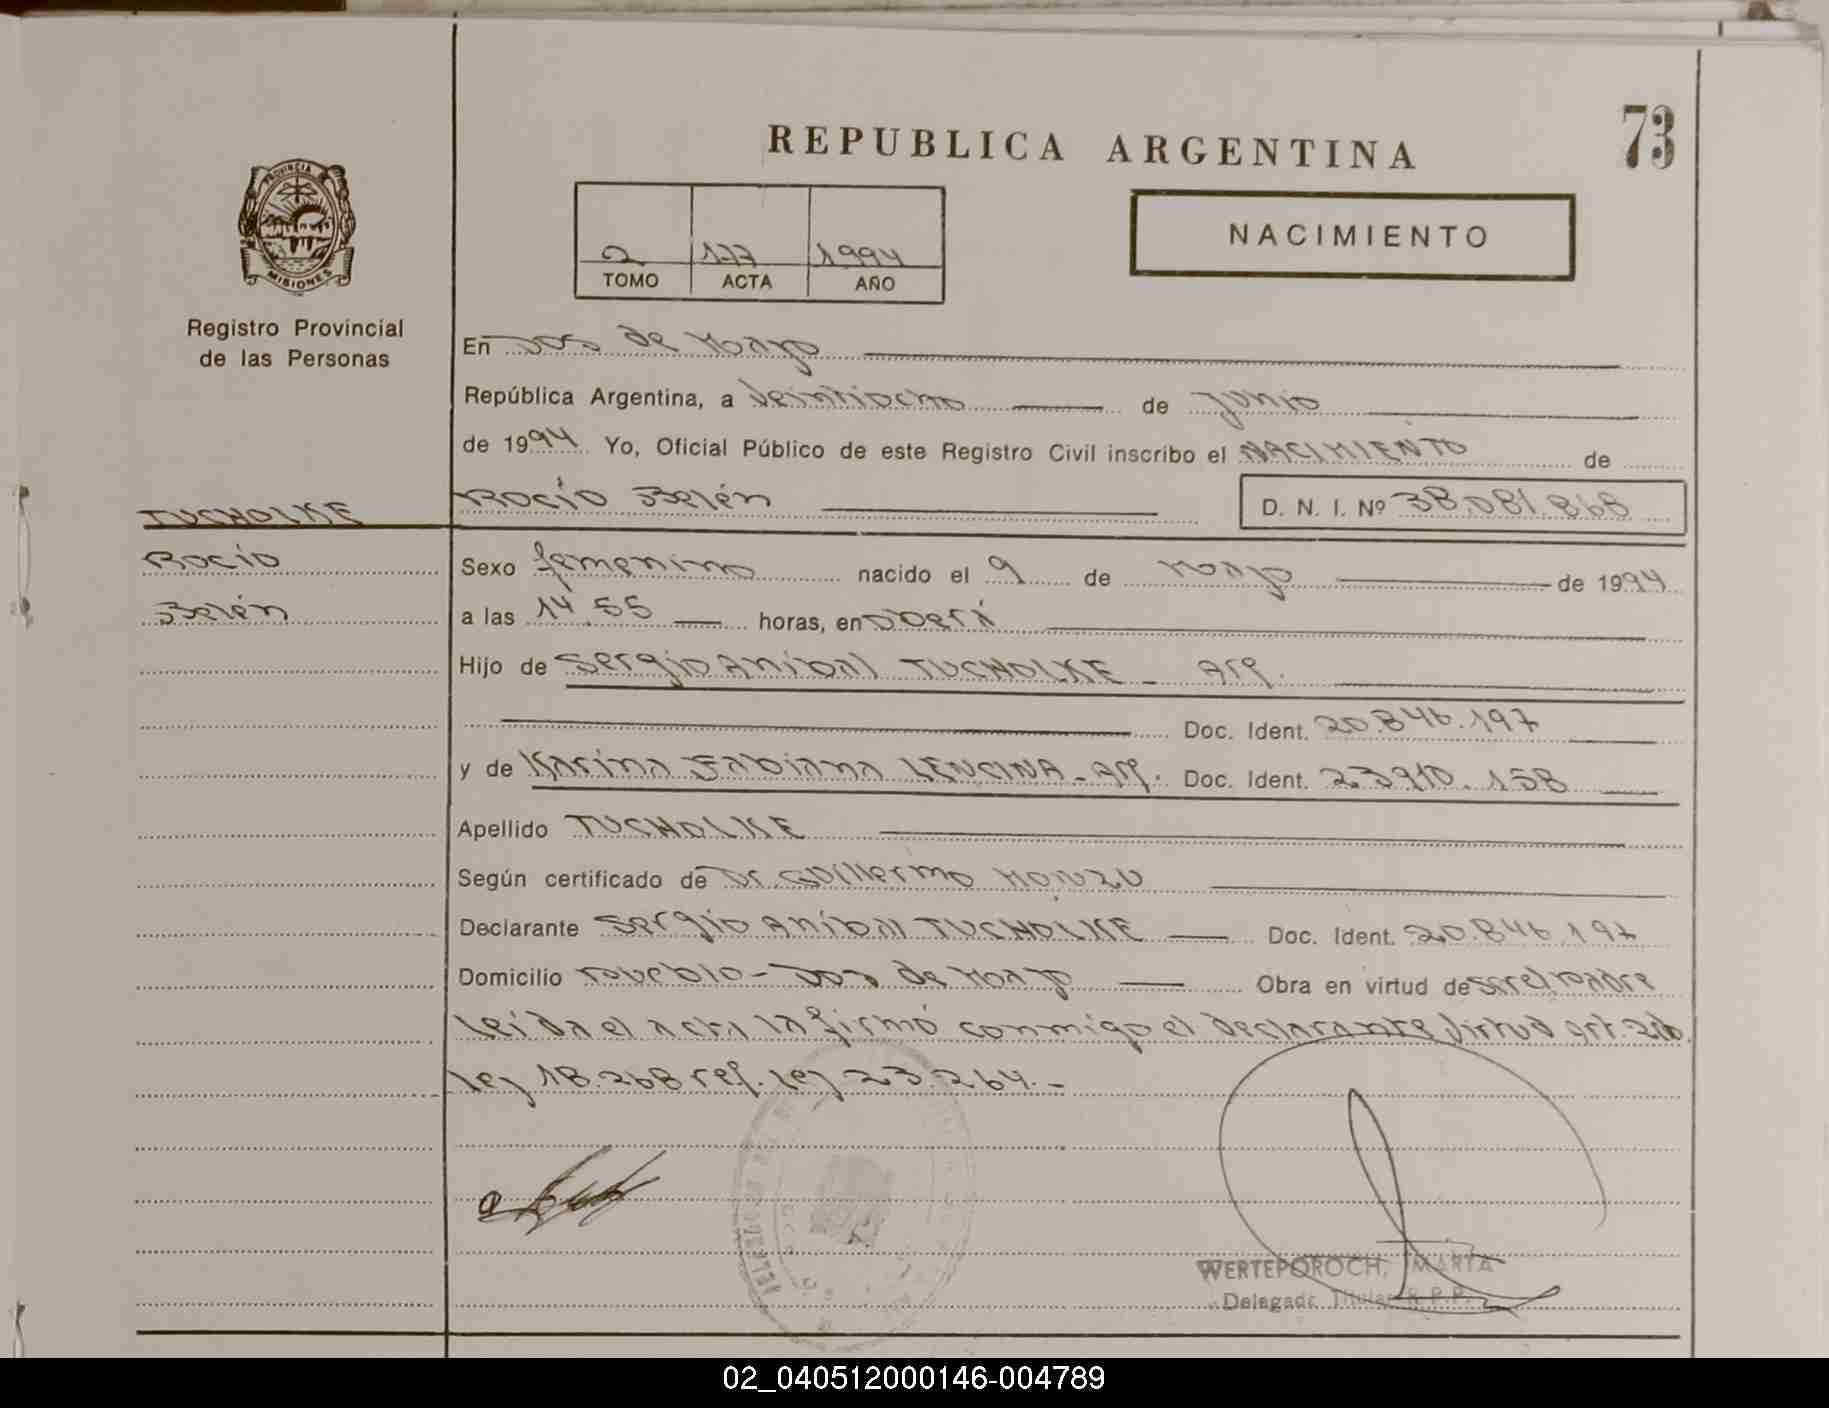 73
REPUBLICA ARGENTINA
PROVINCIA DE
MISIONES
NACIMIENTO
2 177 1994
TOMO ACTA AÑO
Registro Provincial
de las Personas
En Dos de Mayo
República Argentina, a veintiocho de junio
de 1994 Yo, Oficial Público de este Registro Civil inscribo el NACIMIENTO de
TUCHOLKE Rocío Belén D. N. I. Nº 38.081.868
Rocío Sexo femenino nacido el 9 de mayo de 1994
Belén a las 14.55 horas, en Oberá
Hijo de Sergio Aníbal TUCHOLKE - Arg.
Doc. Ident. 20.846.197
y de Karina Fabiana LENCINA - Arg. Doc. Ident. 23.910.158
Apellido TUCHOLKE
Según certificado de Dr Guillermo
Declarante Sergio Aníbal TUCHOLKE Doc. Ident. 20.846.197
Domicilio Pueblo - Dos de Mayo Obra en virtud de ser el padre
Leída el acta la firmó conmigo el declarante virtud art.
Ley 18.268 ref. Ley 23.264.-
WERTEPOROCH, MARTA
Delegada Titular R.P.P.
02_040512000146-004789